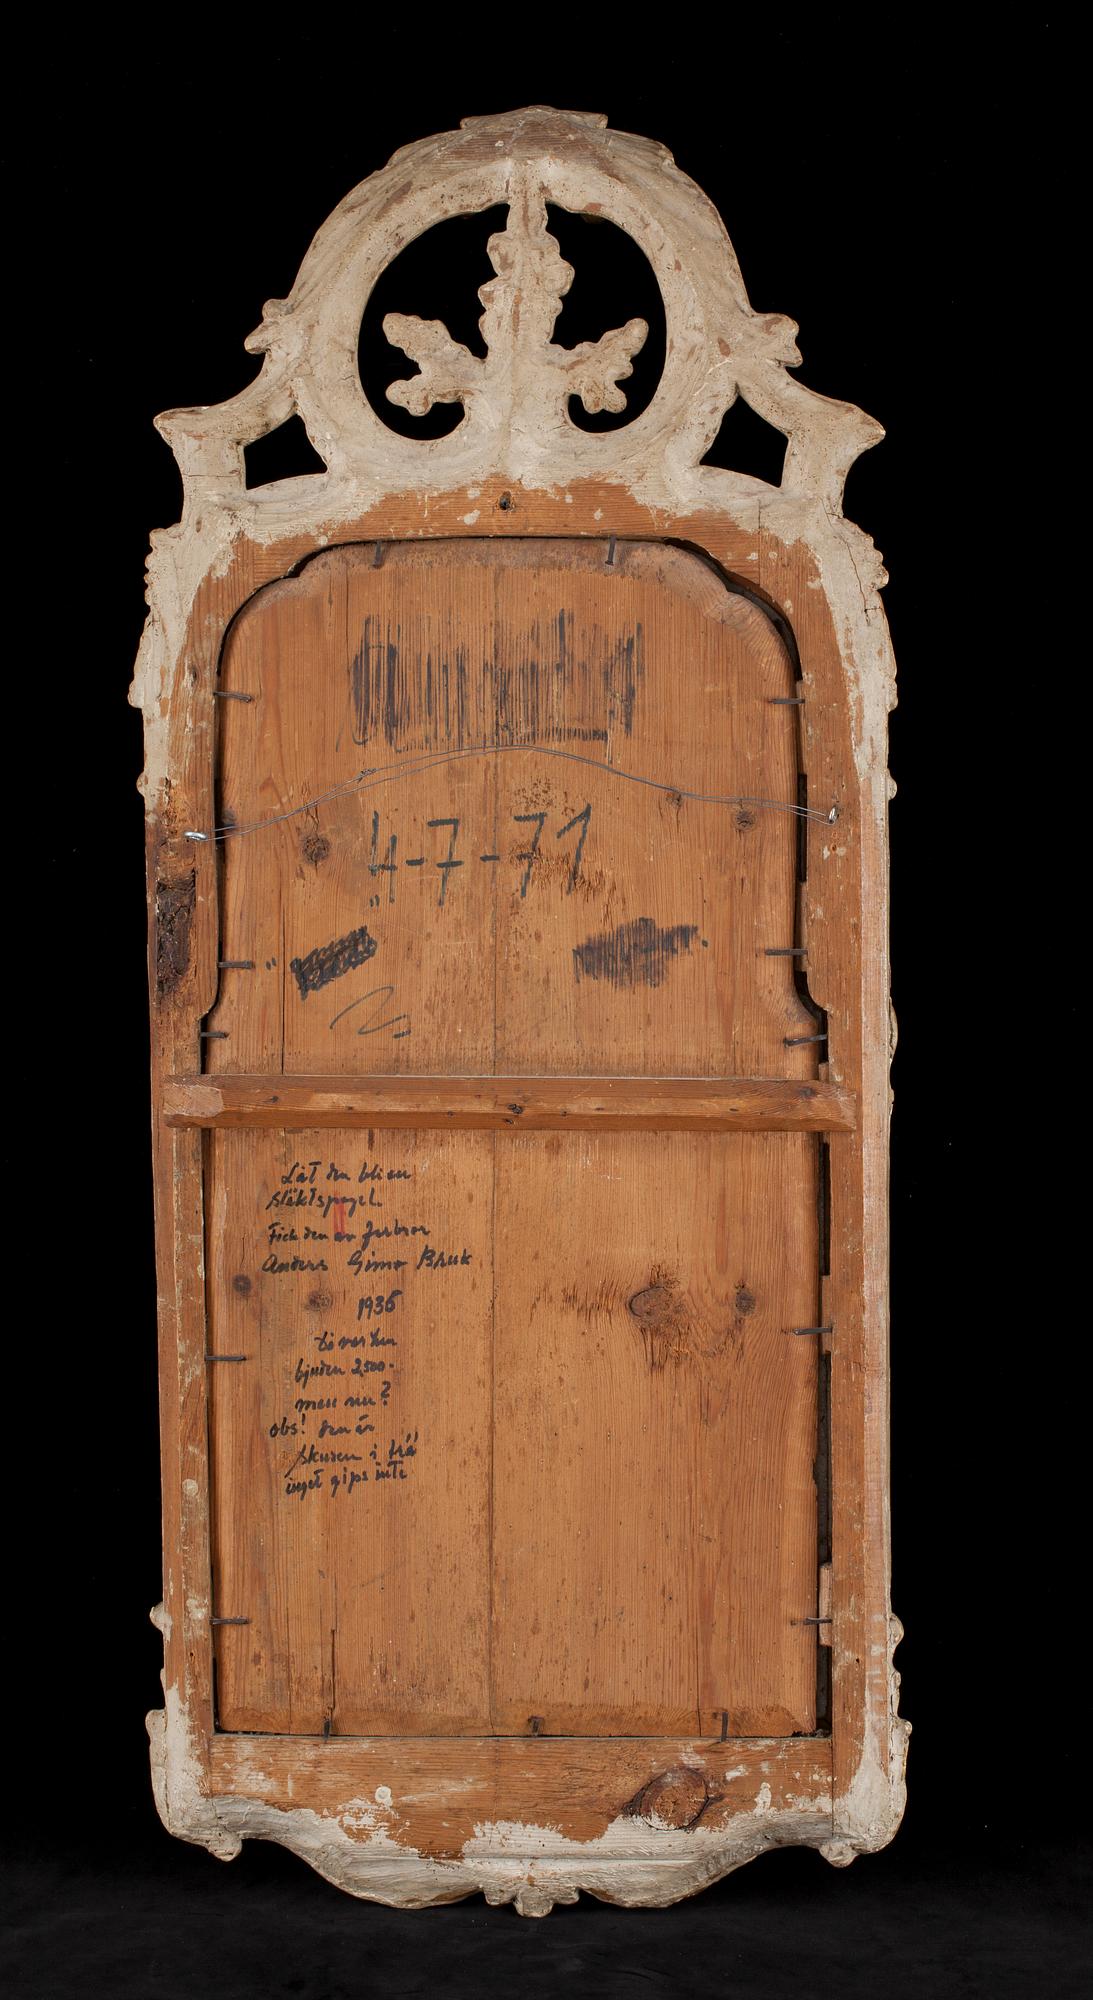 4-7-71
Låt den bli en
släktspegel.
Fick den av farbror
Anders Gimo Bruk
1936
bjuden 2,500.-
men nu?
obs! den är
skuren i trä
inget gips inte